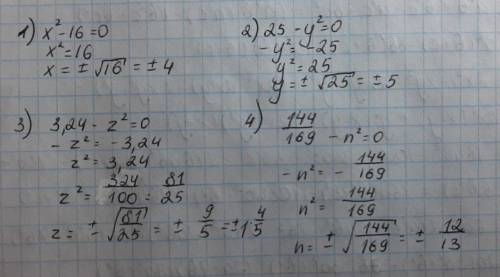 1) x² - 16 = 0
x² = 16
x = ± √16 = ± 4
2) 25 - y² = 0
- y² = - 25
y² = 25
y = ± √25 = ± 5
3) 3,24 - z² = 0
- z² = - 3,24
z² = 3,24
z² = 324/100 = 81/25
z = ± √81/25 = ± 9/5 = ± 1·4/5
4) 144/169 - n² = 0
- n² = - 144/169
n² = 144/169
n = ± √144/169 = ± 12/13